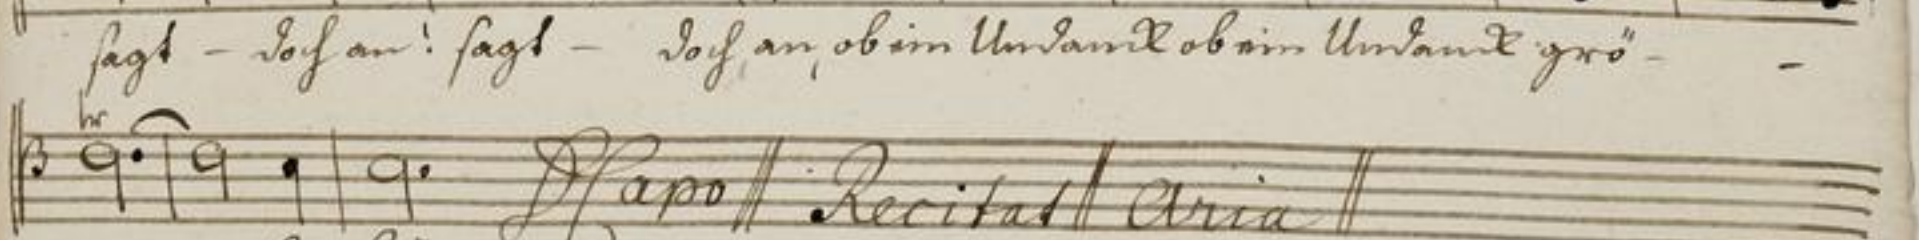 sagt - doch an! sagt - doch, an, ob ein Undanck ob ein Undanck grö - -
tr
D Capo || Recitat || Aria ||